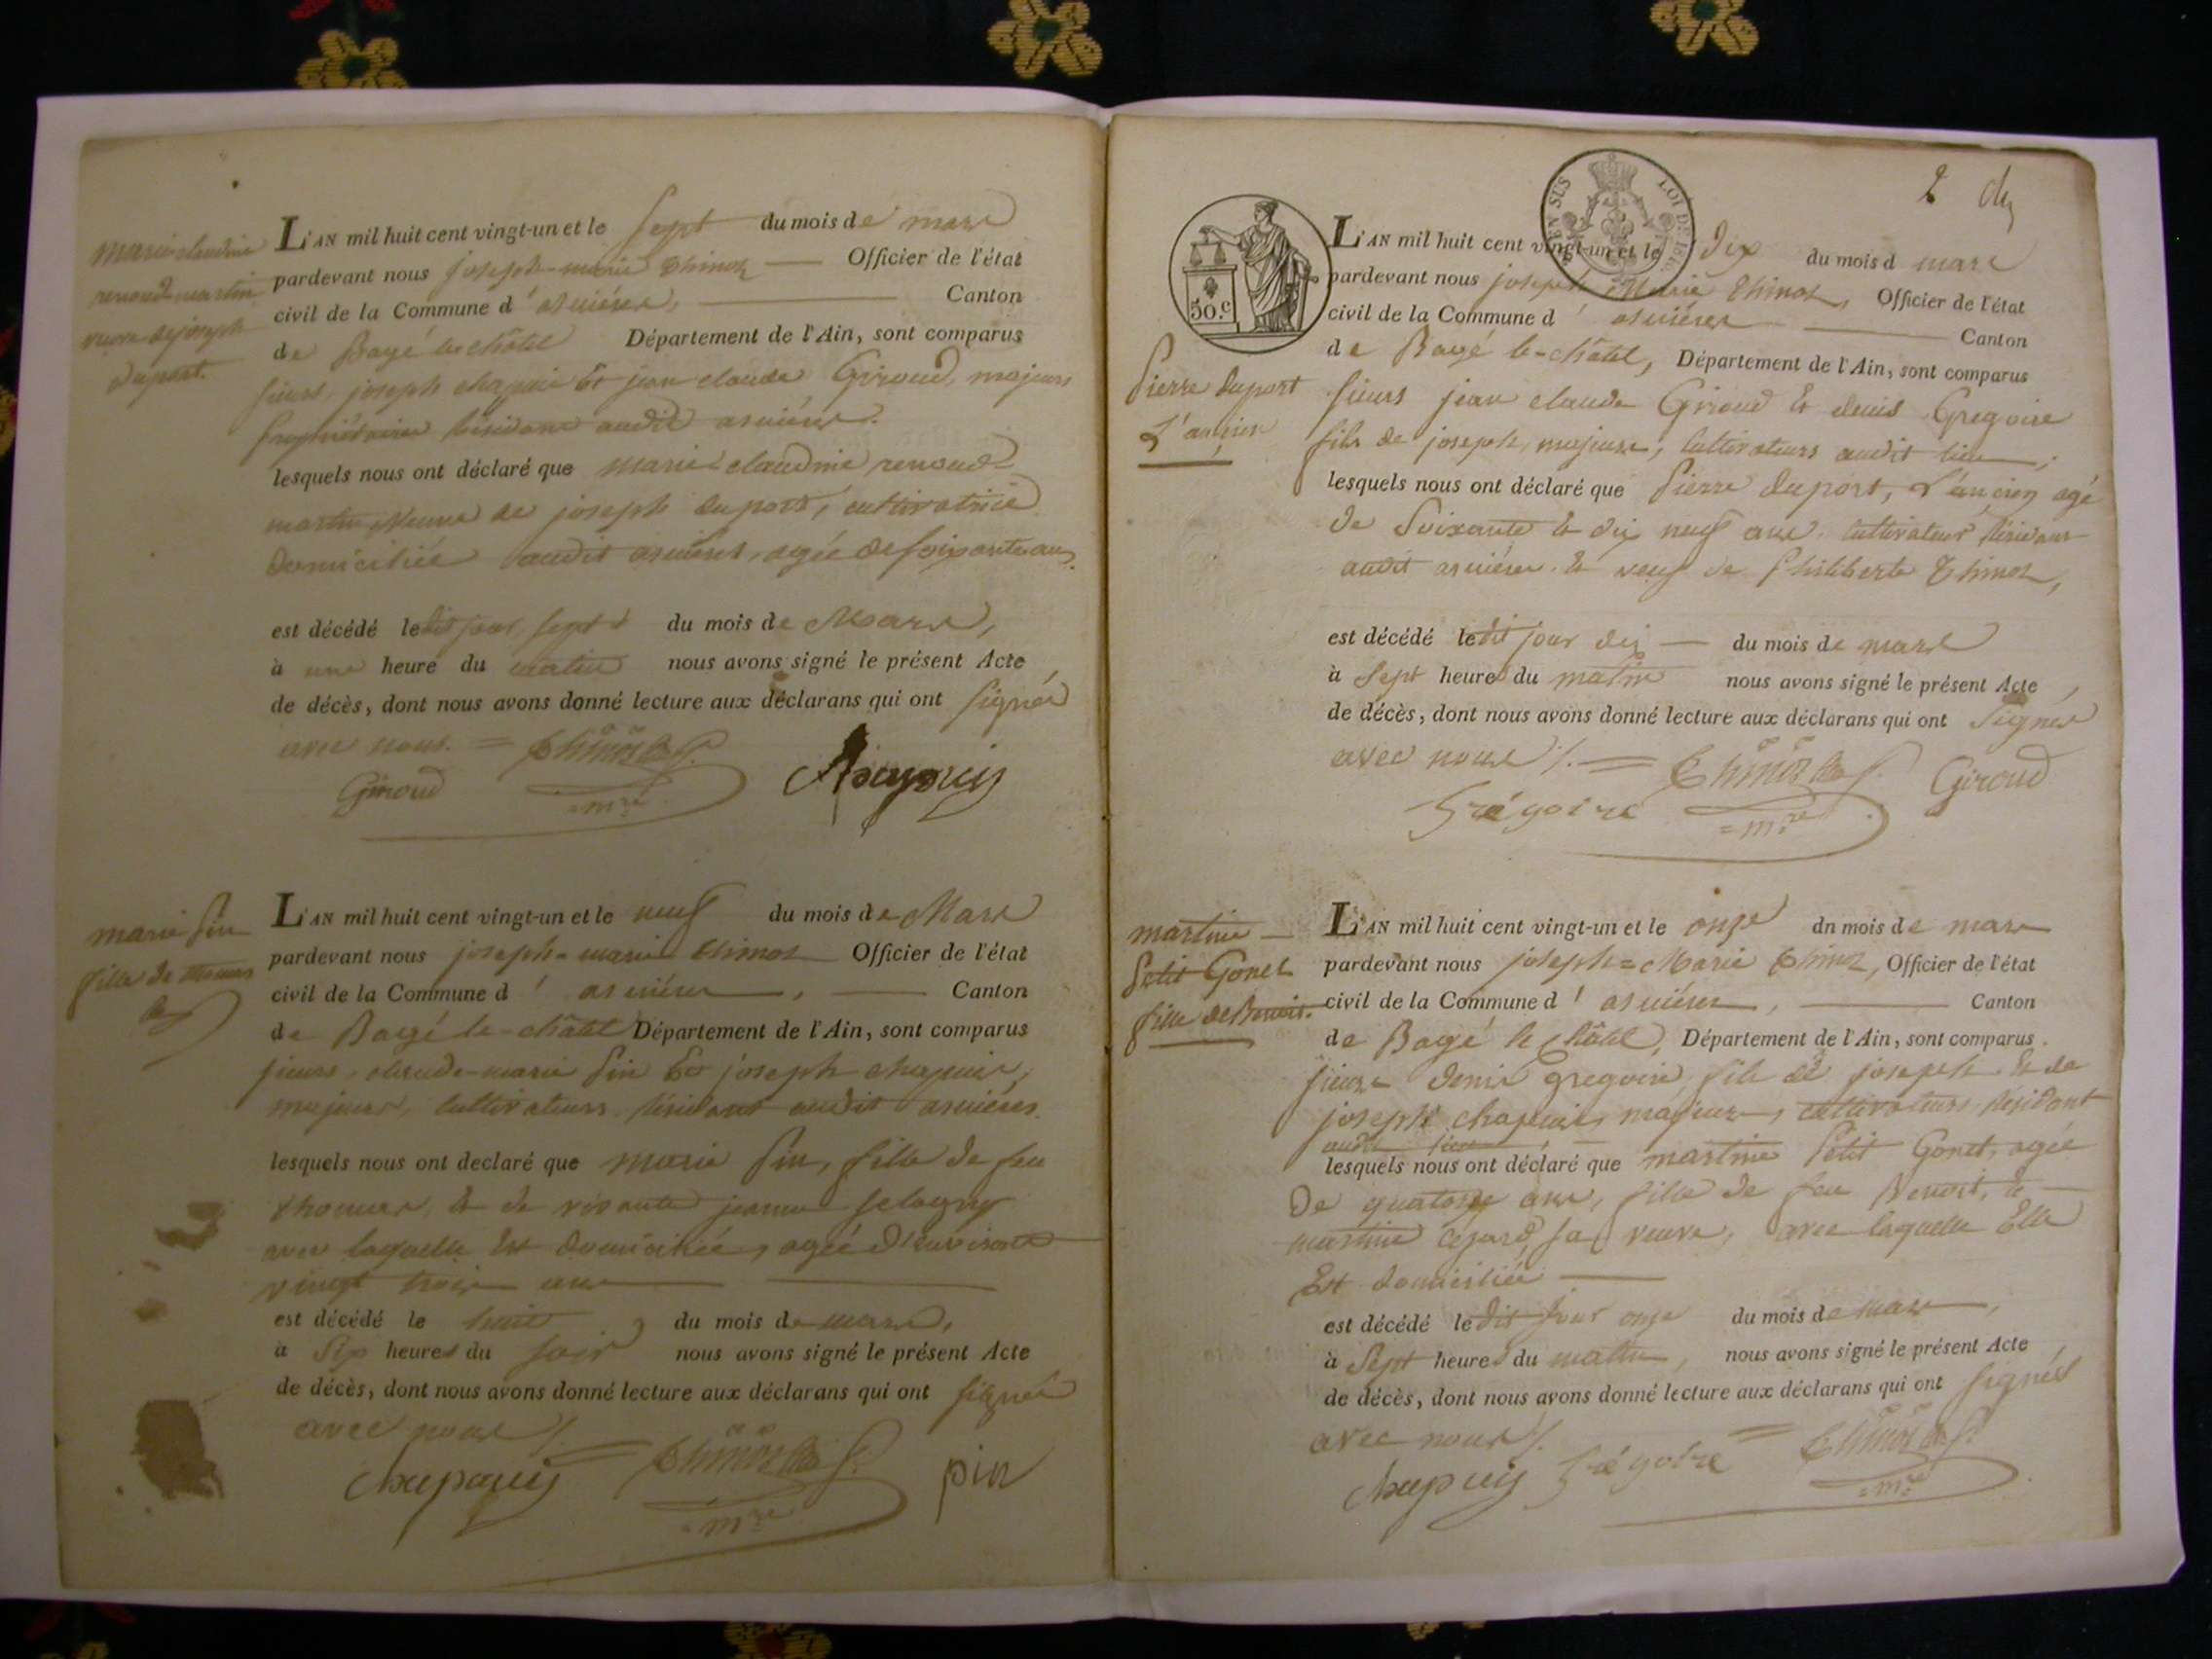 marie claudine
renoud martin
veuve de joseph
duport.
L'AN mil huit cent vingt-un et le sept du mois de mars
pardevant nous joseph-marie Thinon Officier de l'état
civil de la Commune d'asnières, Canton
de Bagé le châtel Département de l'Ain, sont comparus
sieurs joseph chapuis Et jean claude Giroud, majeurs
propriétaires résidans audit asnières.
lesquels nous ont déclaré que marie claudine renoud
martin veuve de joseph duport, cultivatrice
domiciliée audit asnières, agée de soixante ans
est décédé ledit jour sept du mois de Mars,
à une heure du matin nous avons signé le présent Acte
de décès, dont nous avons donné lecture aux déclarans qui ont signés
avec nous. =
Giroud mre Chapuis
marie pin
fille de thomas
L'AN mil huit cent vingt-un et le neuf du mois de Mars
pardevant nous joseph-marie Thinon Officier de l'état
civil de la Commune d'asnières, Canton
de Bagé le-châtel Département de l'Ain, sont comparus
sieurs claude-marie pin Et joseph chapuis,
majeurs, cultivateurs résidant audit asnières.
lesquels nous ont declaré que marie pin, fille de feu
thomas, et de vivante jeanne
avec laquelle Est domiciliée, agée d'environ
vingt trois ans
est décédé le huit du mois de mars,
à Six heures du soir nous avons signé le présent Acte
de décès, dont nous avons donné lecture aux déclarans qui ont signés
avec nous /. =
chapuis mre pin
2
EN SUS LOI DE 1816.
50.c
Pierre duport
L'ancien
L'AN mil huit cent vingt-un et le Dix du mois d mars
pardevant nous joseph Marie Thinon, Officier de l'état
civil de la Commune d'asnières Canton
de Bagé le-châtel, Département de l'Ain, sont comparus
sieurs jean claude Giroud Et denis Gregoire
fils de joseph, majeurs, cultivateurs audit lieu,
lesquels nous ont déclaré que Pierre duport, L'ancien agé
de Soixante et dix neuf ans cultivateur résidant
audit asnières et veuf de Philiberte Thinon,
est décédé ledit jour dix du mois de mars
à Sept heures du matin nous avons signé le présent Acte,
de décès, dont nous avons donné lecture aux déclarans qui ont Signés
avec nous /. = Giroud
Grégoire mre
martine
Petit Gonet
fille de Benoit.
L'AN mil huit cent vingt-un et le onze dn mois de mars
pardevant nous joseph=Marie Thinon, Officier de l'état
civil de la Commune d'asnières, Canton
de Bagé le Châtel, Département de l'Ain, sont comparus
sieurs Denis gregoire fils de joseph Et de
joseph chapuis, majeurs, cultivateurs, résidant
audit lieu
lesquels nous ont déclaré que martine Petit Gonet, agée
De quatorze ans, fille de feu Benoit, et
martine sa veuve, avec laquelle Elle
Est domiciliée
est décédé ledit jour onze du mois de mars,
à Sept heures du matin, nous avons signé le présent Acte,
de décès, dont nous avons donné lecture aux déclarans qui ont signés
avec nous /. =
chapuis Grégoire mre